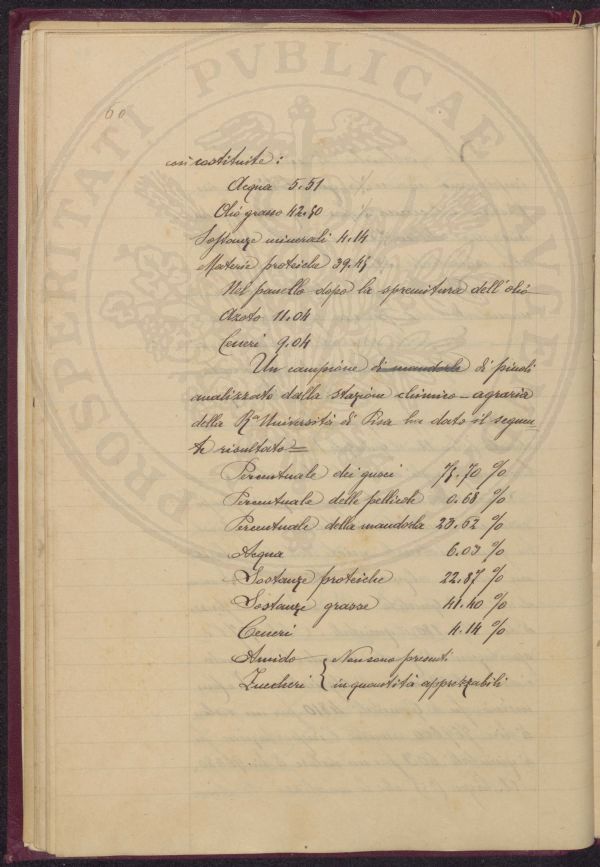 60
PROSPERITATI PVBLICAE AVGEN
così costituite:
Acqua 5.51
Olio grasso 42.50
Sostanze minerali 4.14
Materie proteiche 39.45
Nel panello dopo la spremitura dell'olio
Azoto 11.04
Ceneri 9.04
Un campione di mandorle di pinoli
analizzato dalla stazione chimico-agraria
della Ra Università di Pisa ha dato il seguen-
te risultato=
Percentuale dei gusci 75.70 %
Percentuale delle pellicole 0.68 %
Percentuale della mandorla 23.62 %
Acqua 6.03 %
Sostanze proteiche 22.87 %
Sostanze grasse 41.40 %
Ceneri 4.14 %
Amido { Non sono presenti
Zuccheri { in quantità apprezzabili